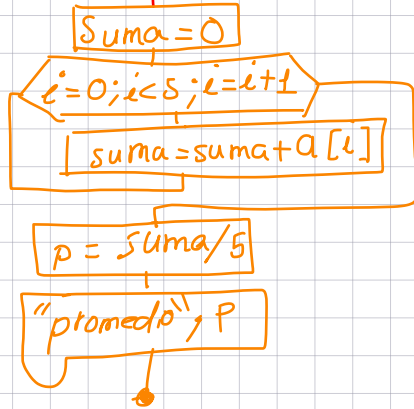 Suma=0
i=0;i<5;i=i+1
suma=suma+a[i]
p=suma/5
"promedio", P